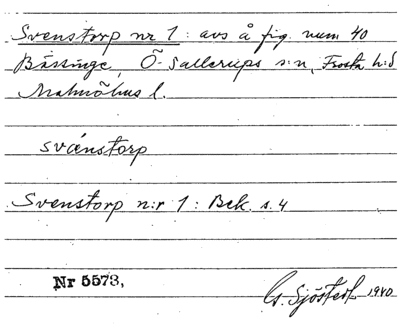 Svenstorp nr 1: avs å fig. num 40
Bässinge, Ö-Sallerups s:n, Frosta h:d
Malmöhus l.
svä́nstorp
Svenstorp n:r 1: Bek. s. 4
Nr 5573,
G. Sjöstedt 1940